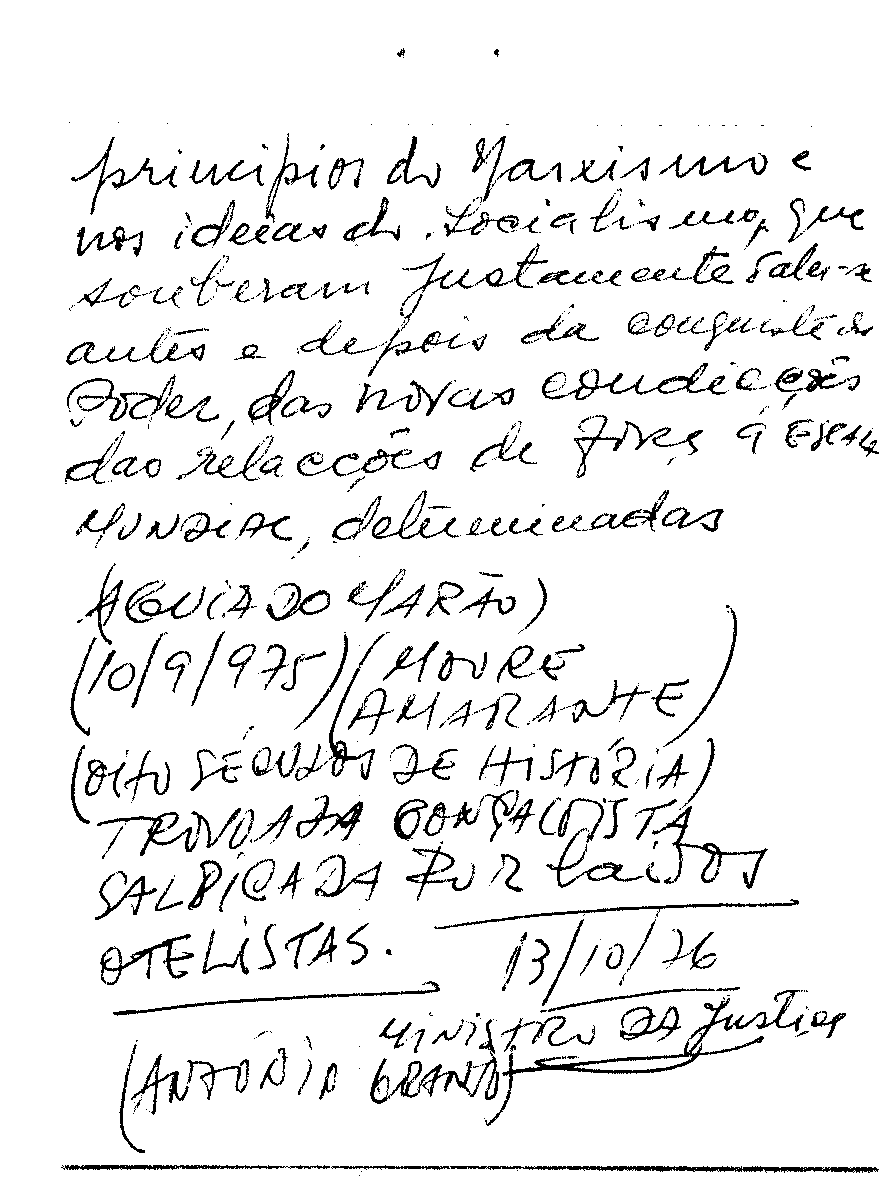 princípios do Marxismo e
nos ideias do Socialismo, que
souberam justamente valer-se
antes e depois da conquista do
Poder, das novas condicções
das relacções de força á ESCALA
MUNDIAL, determinadas
(AGUIA DO MARÃO)
(10/9/975) (MOURE
AMARANTE)
(OITO SÉCULOS DE HISTÓRIA)
TROVOADA GONÇALVISTA
SALPICADA POR laivos
OTELISTAS.
13/10/76
MINISTRO DA Justiça
(ANTÓNIO GRANDO)